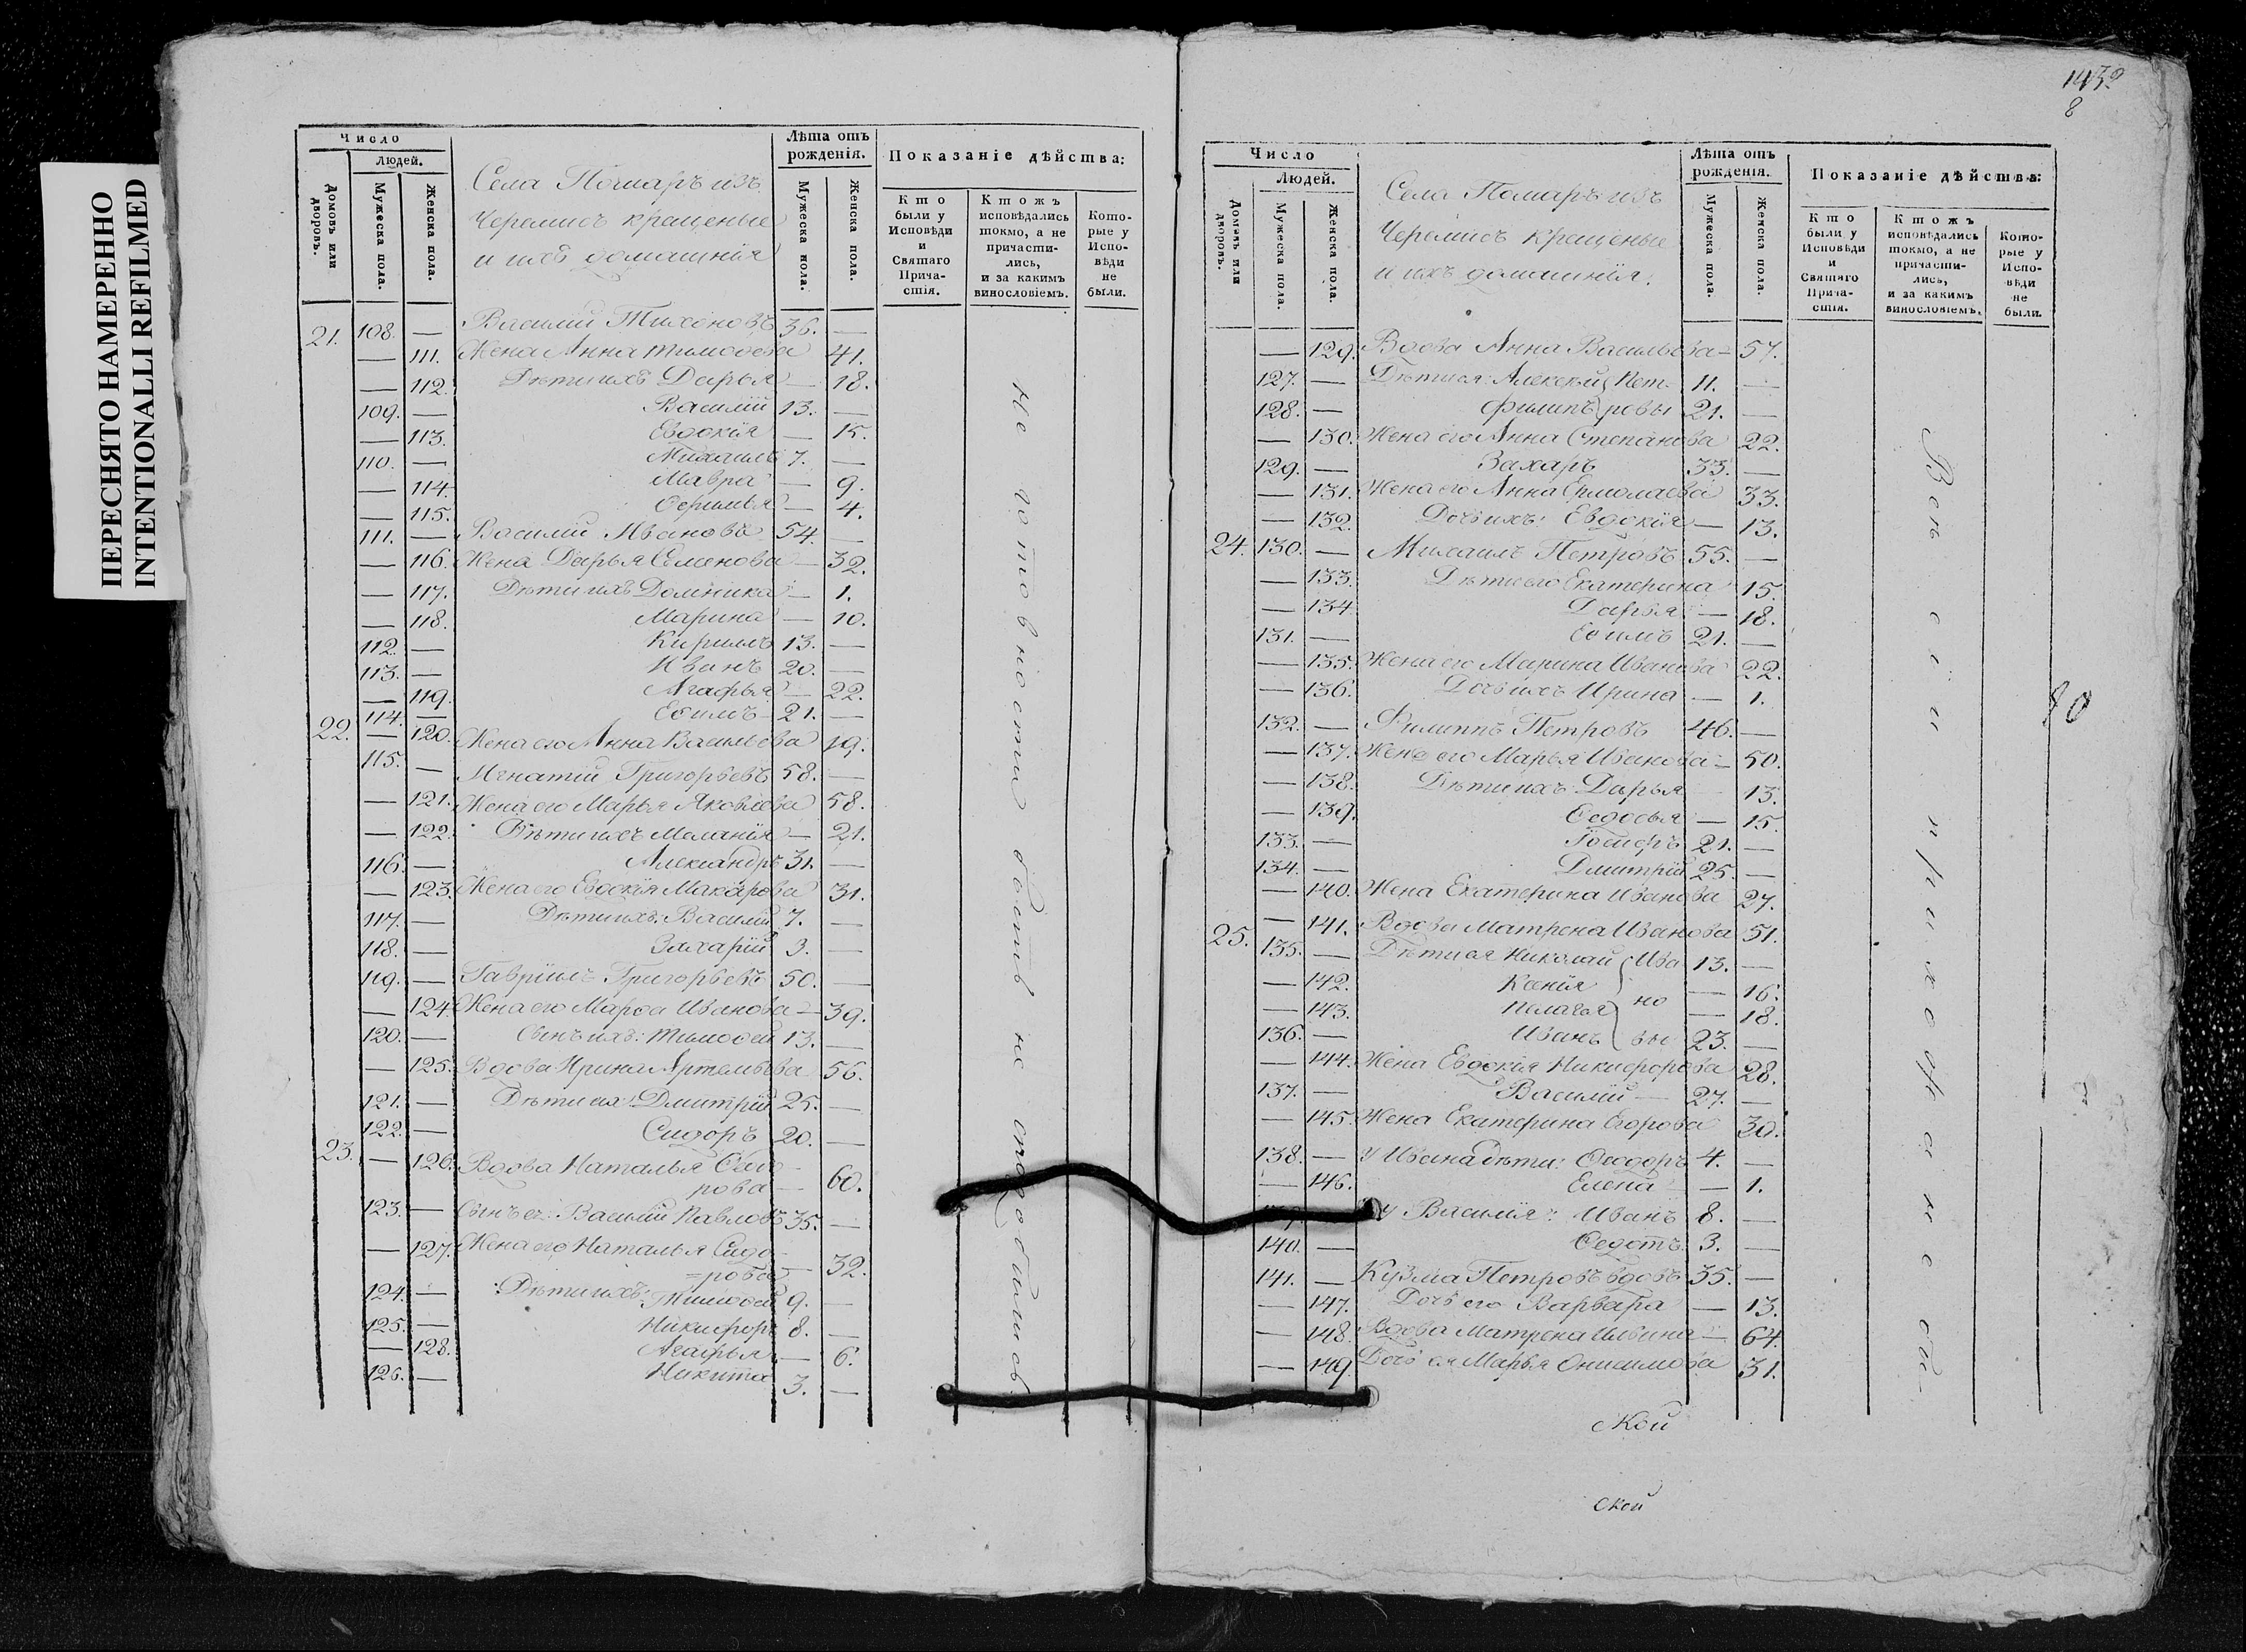 ПЕРЕСНЯТО НАМЕРЕННО
INTENTIONALLI REFILMED
Число
Людей.
Домовъ или дворовъ.
Мужеска пола.
Женска пола.
Села Помаръ изъ
Черемисъ крещеные
и ихъ домашнія
Лѣта отъ рожденія.
Мужеска пола.
Женска пола.
Показаніе дѣйства:
Кто были у Исповѣди и Святаго Причастія.
Ктожъ исповѣдались токмо, а не причастились, и за какимъ винословіемъ.
Которые у Исповѣди не были.
21. 108. — Василій Тихоновъ 36. —
— 111. Жена Анна Тимоѳеева 41.
— 112. Дѣти ихъ Дарья — 18.
109. — Василій 13. —
— 113. Евдокія — 15.
110. — Михаилъ 7. —
— 114. Мавра — 9.
— 115. — 4.
111. — Василій Ивановъ 54. —
— 116. Жена Дарья Семенова — 32.
— 117. Дѣти ихъ Домника — 1.
— 118. Марина — 10.
112. — Кирилъ 13. —
113. — Иванъ 20. —
— 119. Агафья — 22.
114. — Еѳимъ 21. —
22. — 120. Жена его Анна Васильева 19.
115. — Игнатій Григорьевъ 58. —
— 121. Жена его Марья Яковлева 58.
— 122. Дѣти ихъ Меланія — 21.
116. — Александръ 31. —
— 123. Жена его Евдокія Макарова 31.
117. — Дѣти ихъ: Василій 7. —
118. — Захарій 3. —
119. — Гавріилъ Григорьевъ 50. —
— 124. Жена его Марѳа Иванова — 39.
120. — Сынъ ихъ: Тимоѳей 13. —
— 125. Вдова Ирина Артемьева 56.
121. — Дѣти ея: Дмитрій 25. —
122. — Сидоръ 20. —
23. — 126. Вдова Наталья
рова — 60.
123. — Сынъ ея: Василій Павловъ 35. —
— 127. Жена его Наталья Сидо-
=рова — 32.
124. — Дѣти ихъ: Тимоѳей 9. —
125. — Никифоръ 8. —
— 128. Агафья — 6.
126. — Никита 3. —
не готовностію бывъ не сподобились
8
Число
Людей.
Домовъ или дворовъ.
Мужеска пола.
Женска пола.
Села Помаръ изъ
Черемисъ крещеные
и ихъ домашнія.
Лѣта отъ рожденія.
Мужеска пола.
Женска пола.
Показаніе дѣйства:
Кто были у Исповѣди и Святаго Причастія.
Ктожъ исповѣдались токмо, а не причастились, и за какимъ винословіемъ.
Которые у Исповѣди не были.
— 129. Вдова Анна Васильева — 57.
127. — Дѣти ея: Алексѣй Пет- 11. —
128. — Филипъ ровы 21. —
— 130. Жена его Анна Степанова 22.
129. — Захаръ 33. —
— 131. Жена его Анна Ермолаева 33.
— 132. Дочь ихъ: Евдокія — 13.
24. 130. — Михаилъ Петровъ 55. —
— 133. Дѣти его Екатерина 15.
— 134. Дарья — 18.
131. — Еѳимъ 21. —
— 135. Жена его Марина Иванова 22.
— 136. Дочь ихъ Ирина — 1.
132. — Филиппъ Петровъ 46. —
— 137. Жена его Марья Иванова — 50.
— 138. Дѣти ихъ Дарья 13.
— 139. Ѳедосья — 15.
133. — Іосифъ 21. —
134. — Дмитрій 25. —
— 140. Жена Екатерина Иванова 27.
— 141. Вдова Матрена Иванова 51.
25. 135. — Дѣти ея Николай Ива 13. —
— 142. Ксенія — 16.
— 143. Пелагея но — 18.
136. — Иванъ вы 23. —
— 144. Жена Евдокія Никифорова 28.
137. — Василій — 27. —
— 145. Жена Екатерина Егорова 30.
138. — У Ивана дѣти: Ѳеодоръ 4. —
— 146. Елена — 1.
У Василія: Иванъ 8. —
140. — Ѳедотъ 3. —
141. — Кузма Петровъ вдовъ 35. —
— 147. Дочь его Варвара — 13.
— 148. Вдова Матрена Ильина — 64.
— 149. Дочь ея Марья Онисимова 31.
Всѣ сіи прихожане оной
ской
ской